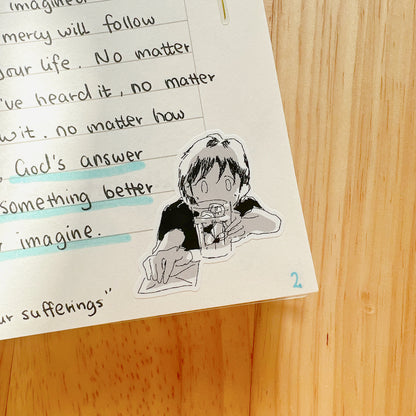 imagined
mercy will follow
your life. No matter
've heard it, no matter
w it. no matter how
God's answer
something better
imagine.
ur sufferings"
2